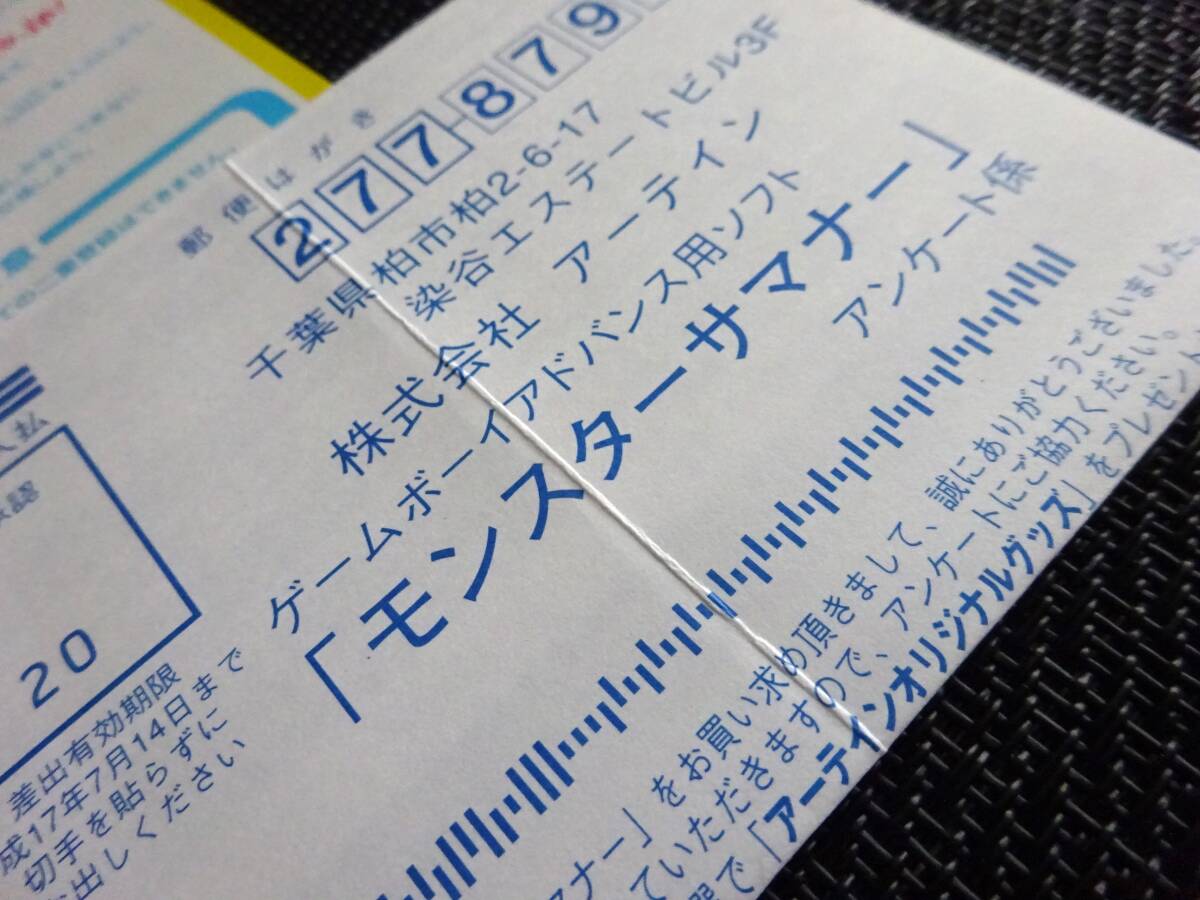 郵便はがき
277-879
千葉県柏市柏2-6-17
染谷エステートビル3F
株式会社 アーテイン
ゲームボーイアドバンス用ソフト
「モンスターサマナー」
アンケート係
20
差出有効期限
成17年7月14日まで
切手を貼らずに
出しください
マナー」をお買い求め頂きまして、誠にありがとうございました。
ていただきますので、アンケートにご協力ください。
で「アーテインオリジナルグッズ」をプレゼント
の二重登録はできません。